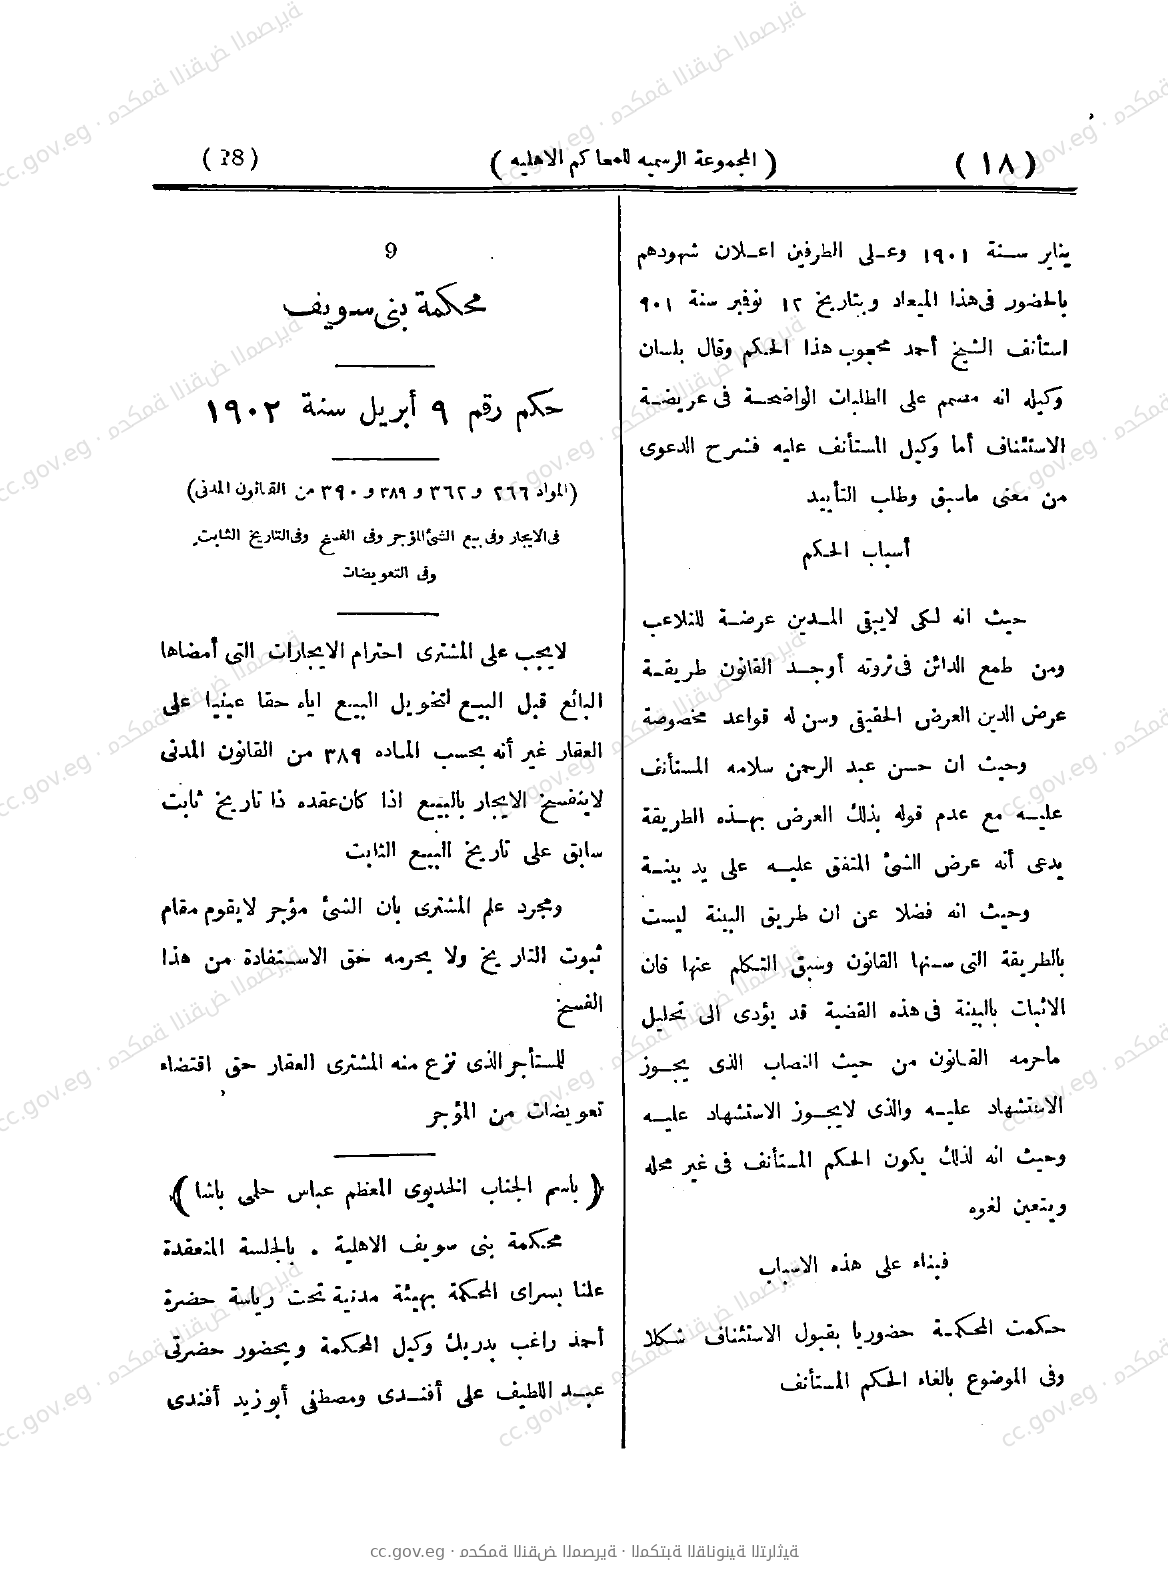 (١٨) (المجموعة الرسميه للمحاكم الاهليه) (18)
يناير سنة ١٩٠١ وعلى الطرفين اعلان شهودهم
بالحضور فى هذا الميعاد وبتاريخ ١٢ نوفمبر سنة ٩٠١
استأنف الشيخ أحمد محجوب هذا الحكم وقال بلسان
وكيله انه مصمم على الطلبات الواضحة فى عريضة
الاستئناف أما وكيل المستأنف عليه فشرح الدعوى
من معنى ماسبق وطلب التأييد
أسباب الحكم
حيث انه لكى لايبقى المدين عرضة للتلاعب
ومن طمع الدائن فى ثروته أوجد القانون طريقة
عرض الدين العرض الحقيقى وسن له قواعد مخصوصة
وحيث ان حسن عبد الرحمن سلامه المستأنف
عليه مع عدم قوله بذلك العرض بهذه الطريقة
يدعى أنه عرض الشئ المتفق عليه على يد بينة
وحيث انه فضلا عن ان طريق البينة ليست
بالطريقة التى سنها القانون وسبق التكلم عنها فان
الاثبات بالبينة فى هذه القضية قد يؤدى الى تحليل
ماحرمه القانون من حيث النصاب الذى يجوز
الاستشهاد عليه والذى لايجوز الاستشهاد عليه
وحيث انه لذلك يكون الحكم المستأنف فى غير محله
ويتعين لغوه
فبناء على هذه الاسباب
حكمت المحكمة حضوريا بقبول الاستئناف شكلا
وفى الموضوع بالغاء الحكم المستأنف
9
محكمة بنى سويف
حكم رقم ٩ أبريل سنة ١٩٠٢
(المواد ٢٦٦ و ٣٦٢ و ٣٨٩ و ٣٩٠ من القانون المدنى)
فى الايجار وفى بيع الشئ المؤجر وفى الفسخ وفى التاريخ الثابت
وفى التعويضات
لايجب على المشترى احترام الايجارات التى أمضاها
البائع قبل البيع لتخويل البيع اياه حقا عينيا على
العقار غير أنه بحسب الماده ٣٨٩ من القانون المدنى
لاينفسخ الايجار بالبيع اذا كان عقده ذا تاريخ ثابت
سابق على تاريخ البيع الثابت
ومجرد علم المشترى بان الشئ مؤجر لايقوم مقام
ثبوت التاريخ ولا يحرمه حق الاستفادة من هذا
الفسخ
للمستأجر الذى نزع منه المشترى العقار حق اقتضاء
تعويضات من المؤجر
(باسم الجناب الخديوى المعظم عباس حلمى باشا)
محكمة بنى سويف الاهلية . بالجلسة المنعقدة
علنا بسراى المحكمة بهيئة مدنية تحت رياسة حضرة
أحمد راغب بدر بك وكيل المحكمة وبحضور حضرتى
عبد اللطيف على أفندى ومصطفى أبوزيد أفندى
cc.gov.eg · محكمة النقض المصرية · المكتبة القانونية التراثية